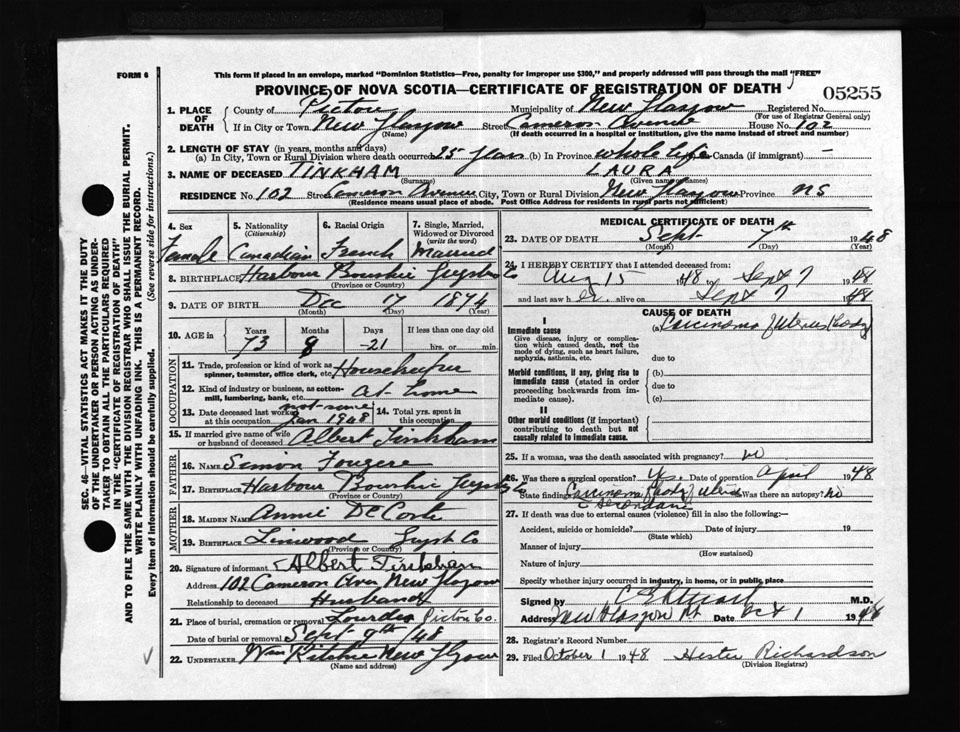 FORM 6
This form if placed in an envelope, marked "Dominion Statistics—Free, penalty for improper use $300," and properly addressed will pass through the mail "FREE"
PROVINCE OF NOVA SCOTIA—CERTIFICATE OF REGISTRATION OF DEATH
05255
1. PLACE OF DEATH County of Pictou Municipality of New Glasgow Registered No.
(For use of Registrar General only)
If in City or Town New Glasgow Street Cameron Avenue House No. 102
(Name) (If death occurred in a hospital or institution, give the name instead of street and number)
2. LENGTH OF STAY (in years, months and days)
(a) In City, Town or Rural Division where death occurred 25 years (b) In Province whole life Canada (if immigrant) —
3. NAME OF DECEASED TINKHAM LAURA
(Surname) (Given name or names)
RESIDENCE No. 102 Street Cameron Avenue City, Town or Rural Division New Glasgow Province NS
(Residence means usual place of abode. Post Office Address for residents in rural parts not sufficient)
4. Sex 5. Nationality (Citizenship) 6. Racial Origin 7. Single, Married, Widowed or Divorced (write the word)
Female Canadian French Married
8. BIRTHPLACE Harbour Bouchie Guysboro Co
(Province or Country)
9. DATE OF BIRTH Dec 17 1874
(Month) (Day) (Year)
10. AGE in Years Months Days If less than one day old
73 8 21 hrs. or min.
OCCUPATION
11. Trade, profession or kind of work as spinner, teamster, office clerk, etc. Housekeeper
12. Kind of industry or business, as cotton-mill, lumbering, bank, etc. at home
13. Date deceased last worked at this occupation not since Jan 1948 14. Total yrs. spent in this occupation
15. If married give name of wife or husband of deceased Albert Tinkham
FATHER
16. NAME Simon Fougere
17. BIRTHPLACE Harbour Bouchie Guysboro Co
(Province or Country)
MOTHER
18. MAIDEN NAME Annie DeCoste
19. BIRTHPLACE Linwood Guysb Co
(Province or Country)
20. Signature of informant Albert Tinkham
Address 102 Cameron Ave New Glasgow
Relationship to deceased Husband
21. Place of burial, cremation or removal Lourdes Pictou Co.
Date of burial or removal Sept 9th 48
22. UNDERTAKER Wm Ritchie New Glasgow
(Name and address)
MEDICAL CERTIFICATE OF DEATH
23. DATE OF DEATH Sept 7th 1948
(Month) (Day) (Year)
24. I HEREBY CERTIFY that I attended deceased from:
Aug 15 1948 to Sept 7 1948
and last saw her alive on Sept 7 1948
CAUSE OF DEATH
I
Immediate cause (a) Carcinoma Uterus (body)
Give disease, injury or complication which caused death, not the mode of dying, such as heart failure, asphyxia, asthenia, etc. due to
Morbid conditions, if any, giving rise to immediate cause (stated in order proceeding backwards from immediate cause). (b)
due to
(c)
II
Other morbid conditions (if important) contributing to death but not causally related to immediate cause.
25. If a woman, was the death associated with pregnancy? no
26. Was there a surgical operation? Yes. Date of operation April 1948
State finding Carcinoma body Uterus Was there an autopsy? No
c Secondaries
27. If death was due to external causes (violence) fill in also the following:—
Accident, suicide or homicide? Date of injury 19
(State which)
Manner of injury
(How sustained)
Nature of injury
Specify whether injury occurred in industry, in home, or in public place
Signed by M.D.
Address New Glasgow Date Oct 1 1948
28. Registrar's Record Number
29. Filed October 1 1948 Hester Richardson
(Division Registrar)
SEC. 46—VITAL STATISTICS ACT MAKES IT THE DUTY
OF THE UNDERTAKER OR PERSON ACTING AS UNDERTAKER TO OBTAIN ALL THE PARTICULARS REQUIRED
IN THE "CERTIFICATE OF REGISTRATION OF DEATH"
AND TO FILE THE SAME WITH THE DIVISION REGISTRAR WHO SHALL ISSUE THE BURIAL PERMIT.
WRITE PLAINLY WITH UNFADING INK. THIS IS A PERMANENT RECORD.
Every item of Information should be carefully supplied. (See reverse side for instructions.)